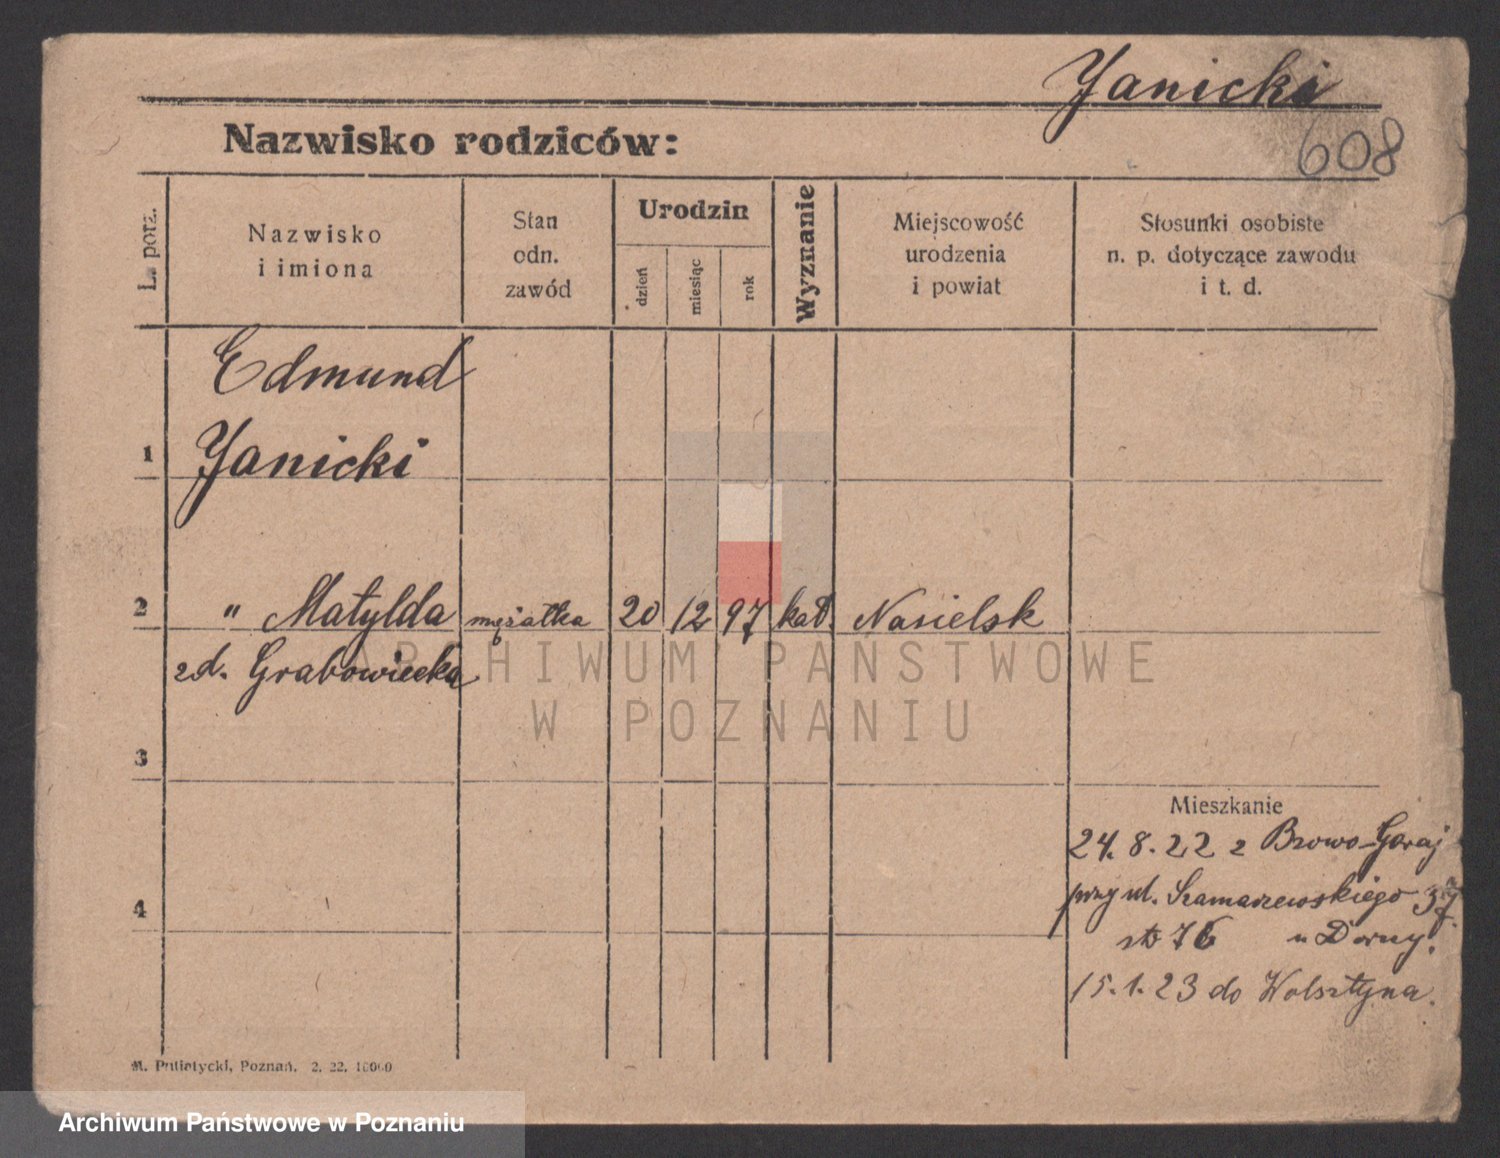 Yanicki
608
Nazwisko rodziców:
L. porz.
Nazwisko
i imiona
Stan
odn.
zawód
Urodzin
dzień
miesiąc
rok
Wyznanie
Miejscowość
urodzenia
i powiat
Stosunki osobiste
n. p. dotyczące zawodu
i t. d.
Edmund
1 Yanicki
2 " Matylda mężatka 20 12 97 kat. Nasielsk
zd. Grabowiecka
3
Mieszkanie
24. 8. 22 z Browo-Goraj
przy ul. Szamarzewskiego 37
4
u Dorny.
15. 1. 23 do Wolsztyna.
M. Putiatycki, Poznań. 2. 22. 10000
ARCHIWUM PAŃSTWOWE
W POZNANIU
Archiwum Państwowe w Poznaniu